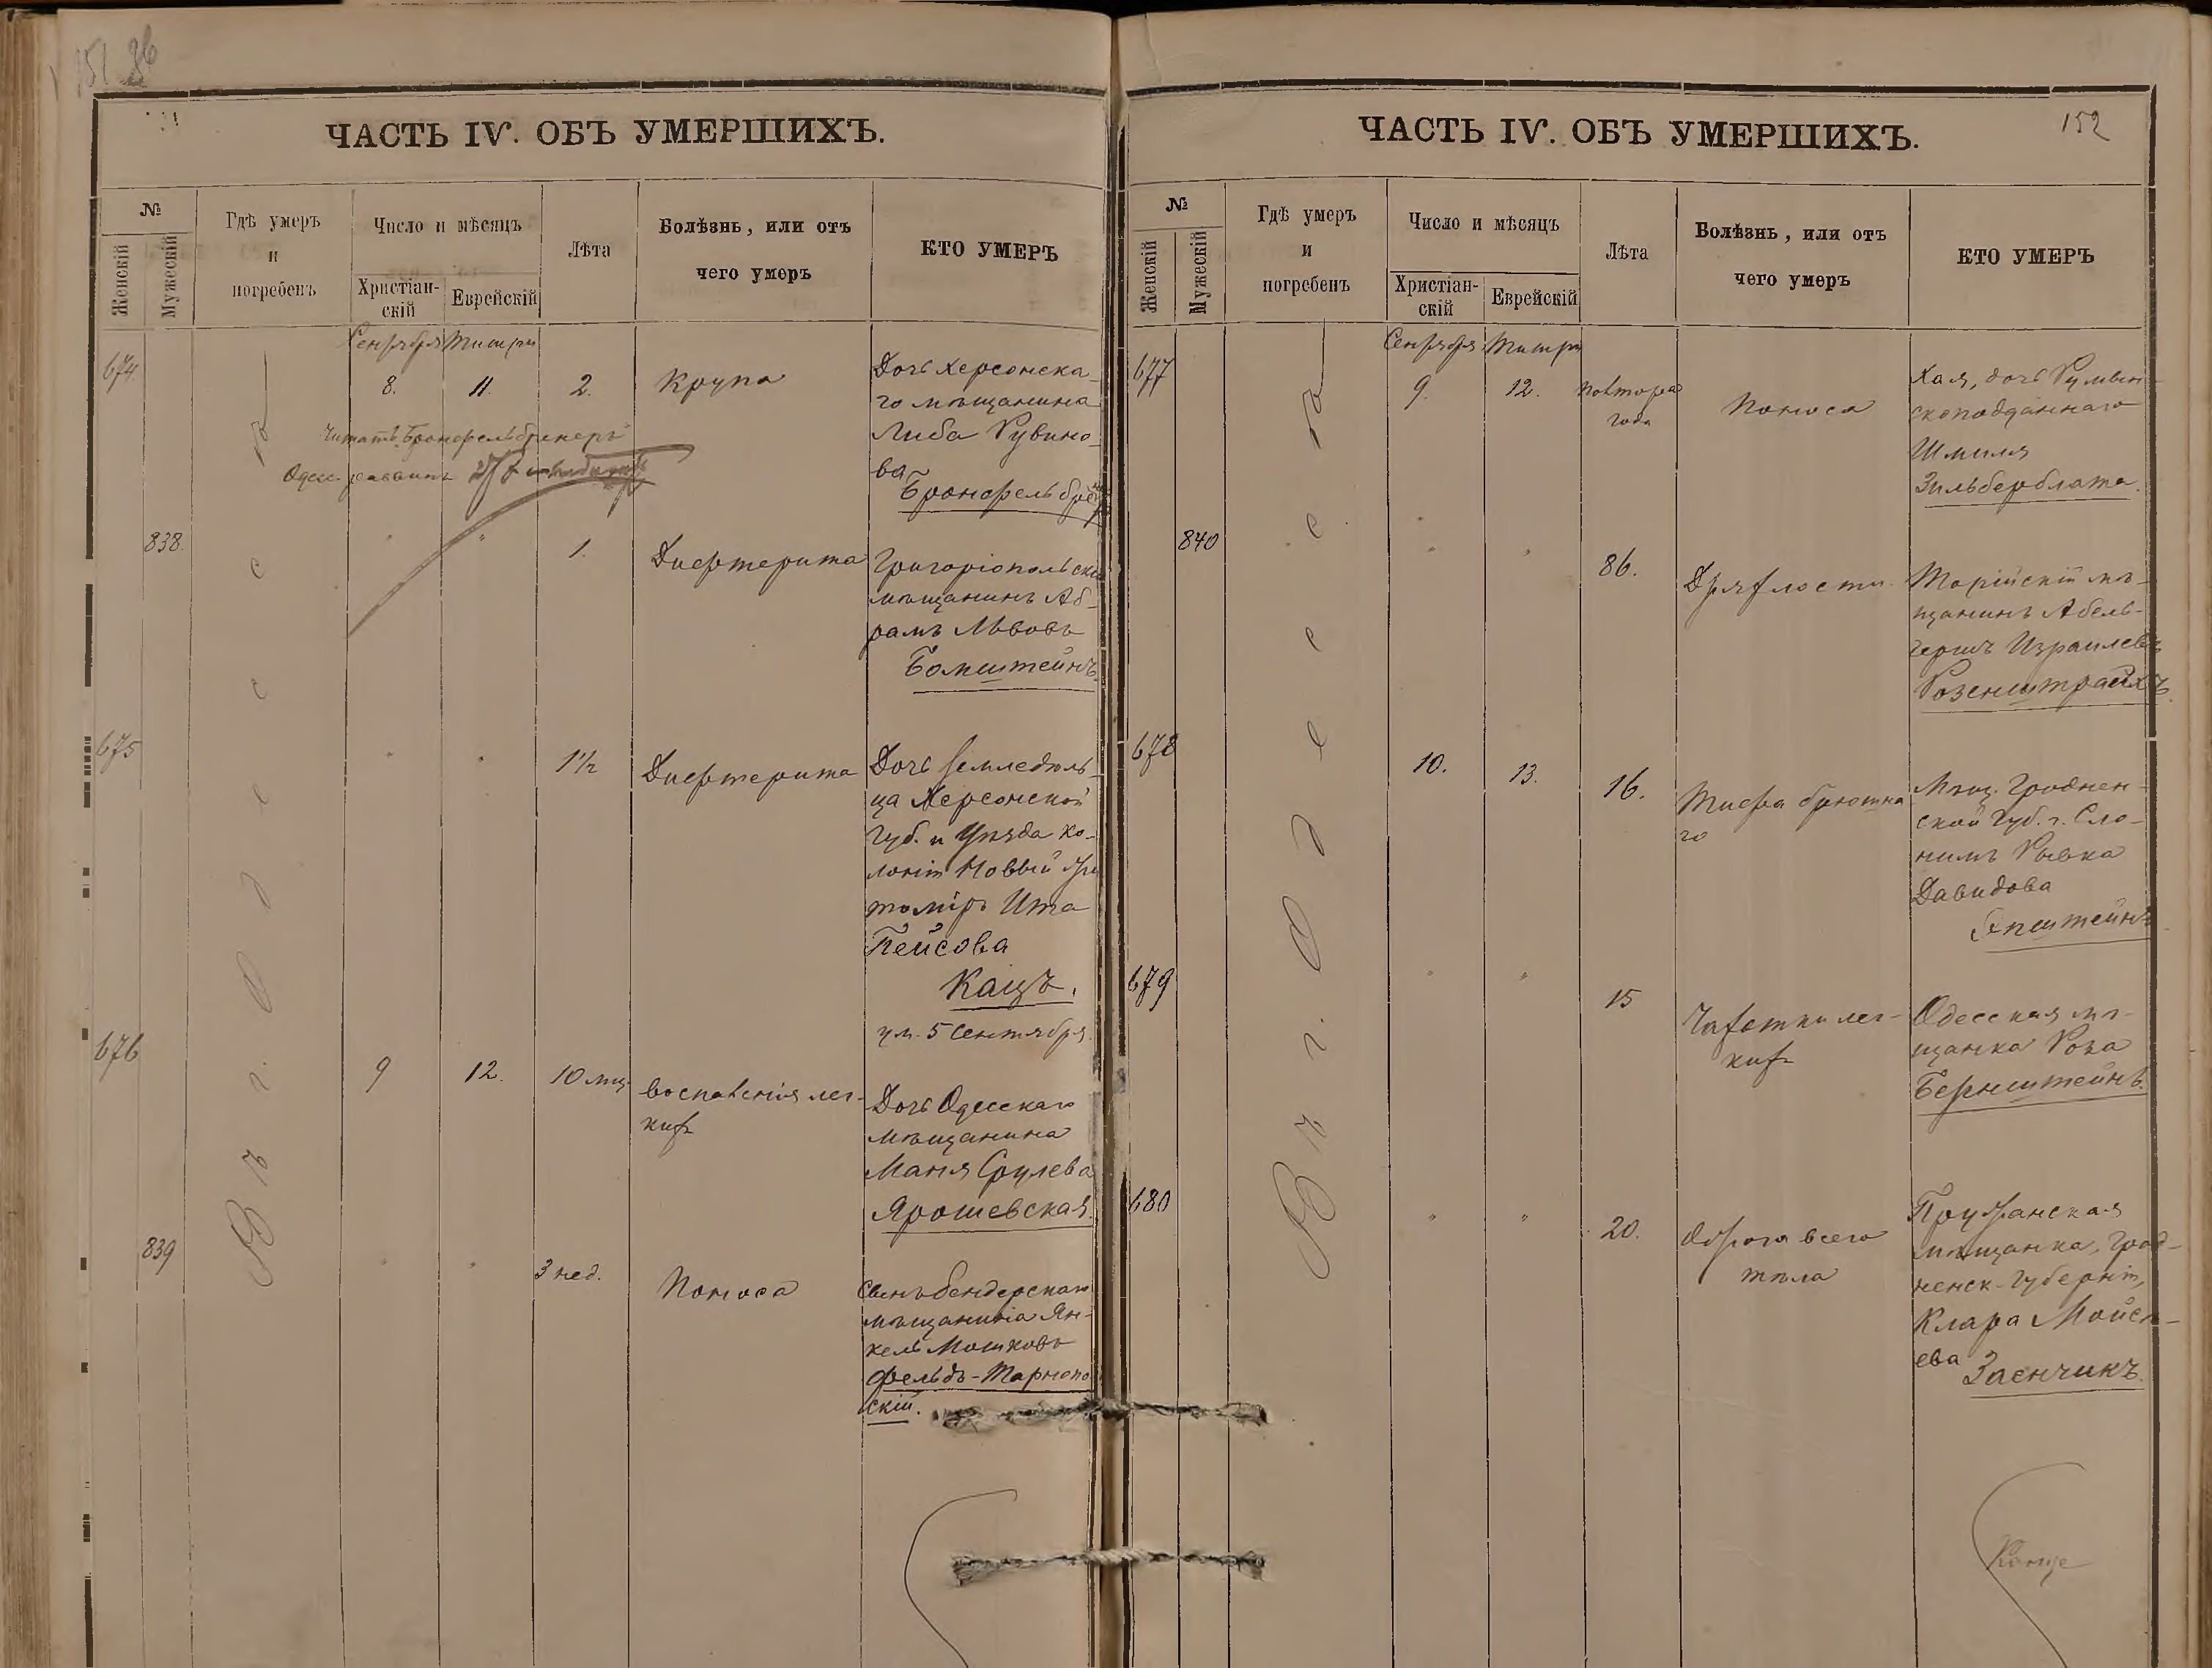 151 86
ЧАСТЬ IV. ОБЪ УМЕРШИХЪ.
№
Женскій
Мужескій
Гдѣ умеръ
и
погребенъ
Число и мѣсяцъ
Христіан-
скій
Еврейскій
Лѣта
Болѣзнь, или отъ
чего умеръ
КТО УМЕРЪ
Сентября Тишри
Въ г. Одессѣ
674
8. 11. 2. Крупа
Дочь Херсонска-
го мѣщанина
Либа Рувино-
ва
Читать "Бронфельбренеръ"
Одес. раввинъ
838.
" " 1. Дифтерита
Григоріопольскій
мѣщанинъ Аб-
рамъ Львовъ
Бомштейнъ.
675
" " 1½ Дифтерита
Дочь Земледѣль-
ца Херсонской
Губ. и Уѣзда ко-
лоніи Новый Жи
томіръ Ита
Пейсова
Кацъ.
ум. 5 Сентября.
676
9 12. 10 мц. Воспаленія лег-
кихъ
Дочь Одесскаго
мѣщанина
Маня Срулева
Ярошевская.
839
" " 3 нед. Поноса
Сынъ бендерскаго
мѣщанина Ян-
кель Мошковъ
Фельдъ-Тарнопо
скій.
152
ЧАСТЬ IV. ОБЪ УМЕРШИХЪ.
№
Женскій
Мужескій
Гдѣ умеръ
и
погребенъ
Число и мѣсяцъ
Христіан-
скій
Еврейскій
Лѣта
Болѣзнь, или отъ
чего умеръ
КТО УМЕРЪ
Сентября Тишри
Въ г. Одессѣ
677
9. 12. Полтора
года
Поноса
Хая, дочь Румын-
скоподданнаго
Шмиля
Зильберблата.
840
" " 86. Дряхлости
Торійскій мѣ-
щанинъ Абель-
Гершъ Израилевъ
Розенштрайхъ.
678
10. 13. 16. Тифа брюшна
го
Мѣщ. Гроднен-
ской Губ. г. Сло-
нимъ Рывка
Давидова
Эпштейнъ
679
" " 15 Чахотки лег-
кихъ
Одесская мѣ-
щанка Роза
Бернштейнъ.
680
" " 20. Ожога всего
тѣла
Пружанская
мѣщанка, Град-
ненск. Губерніи,
Клара Мойсе-
ева Заенчикъ.